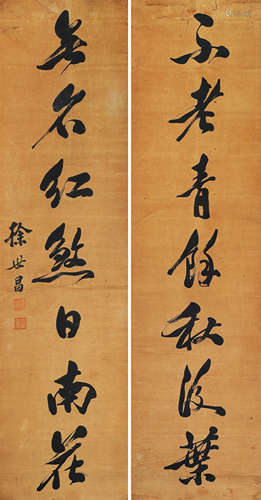 不老青餘秋後葉
無名紅煞日南花
徐世昌